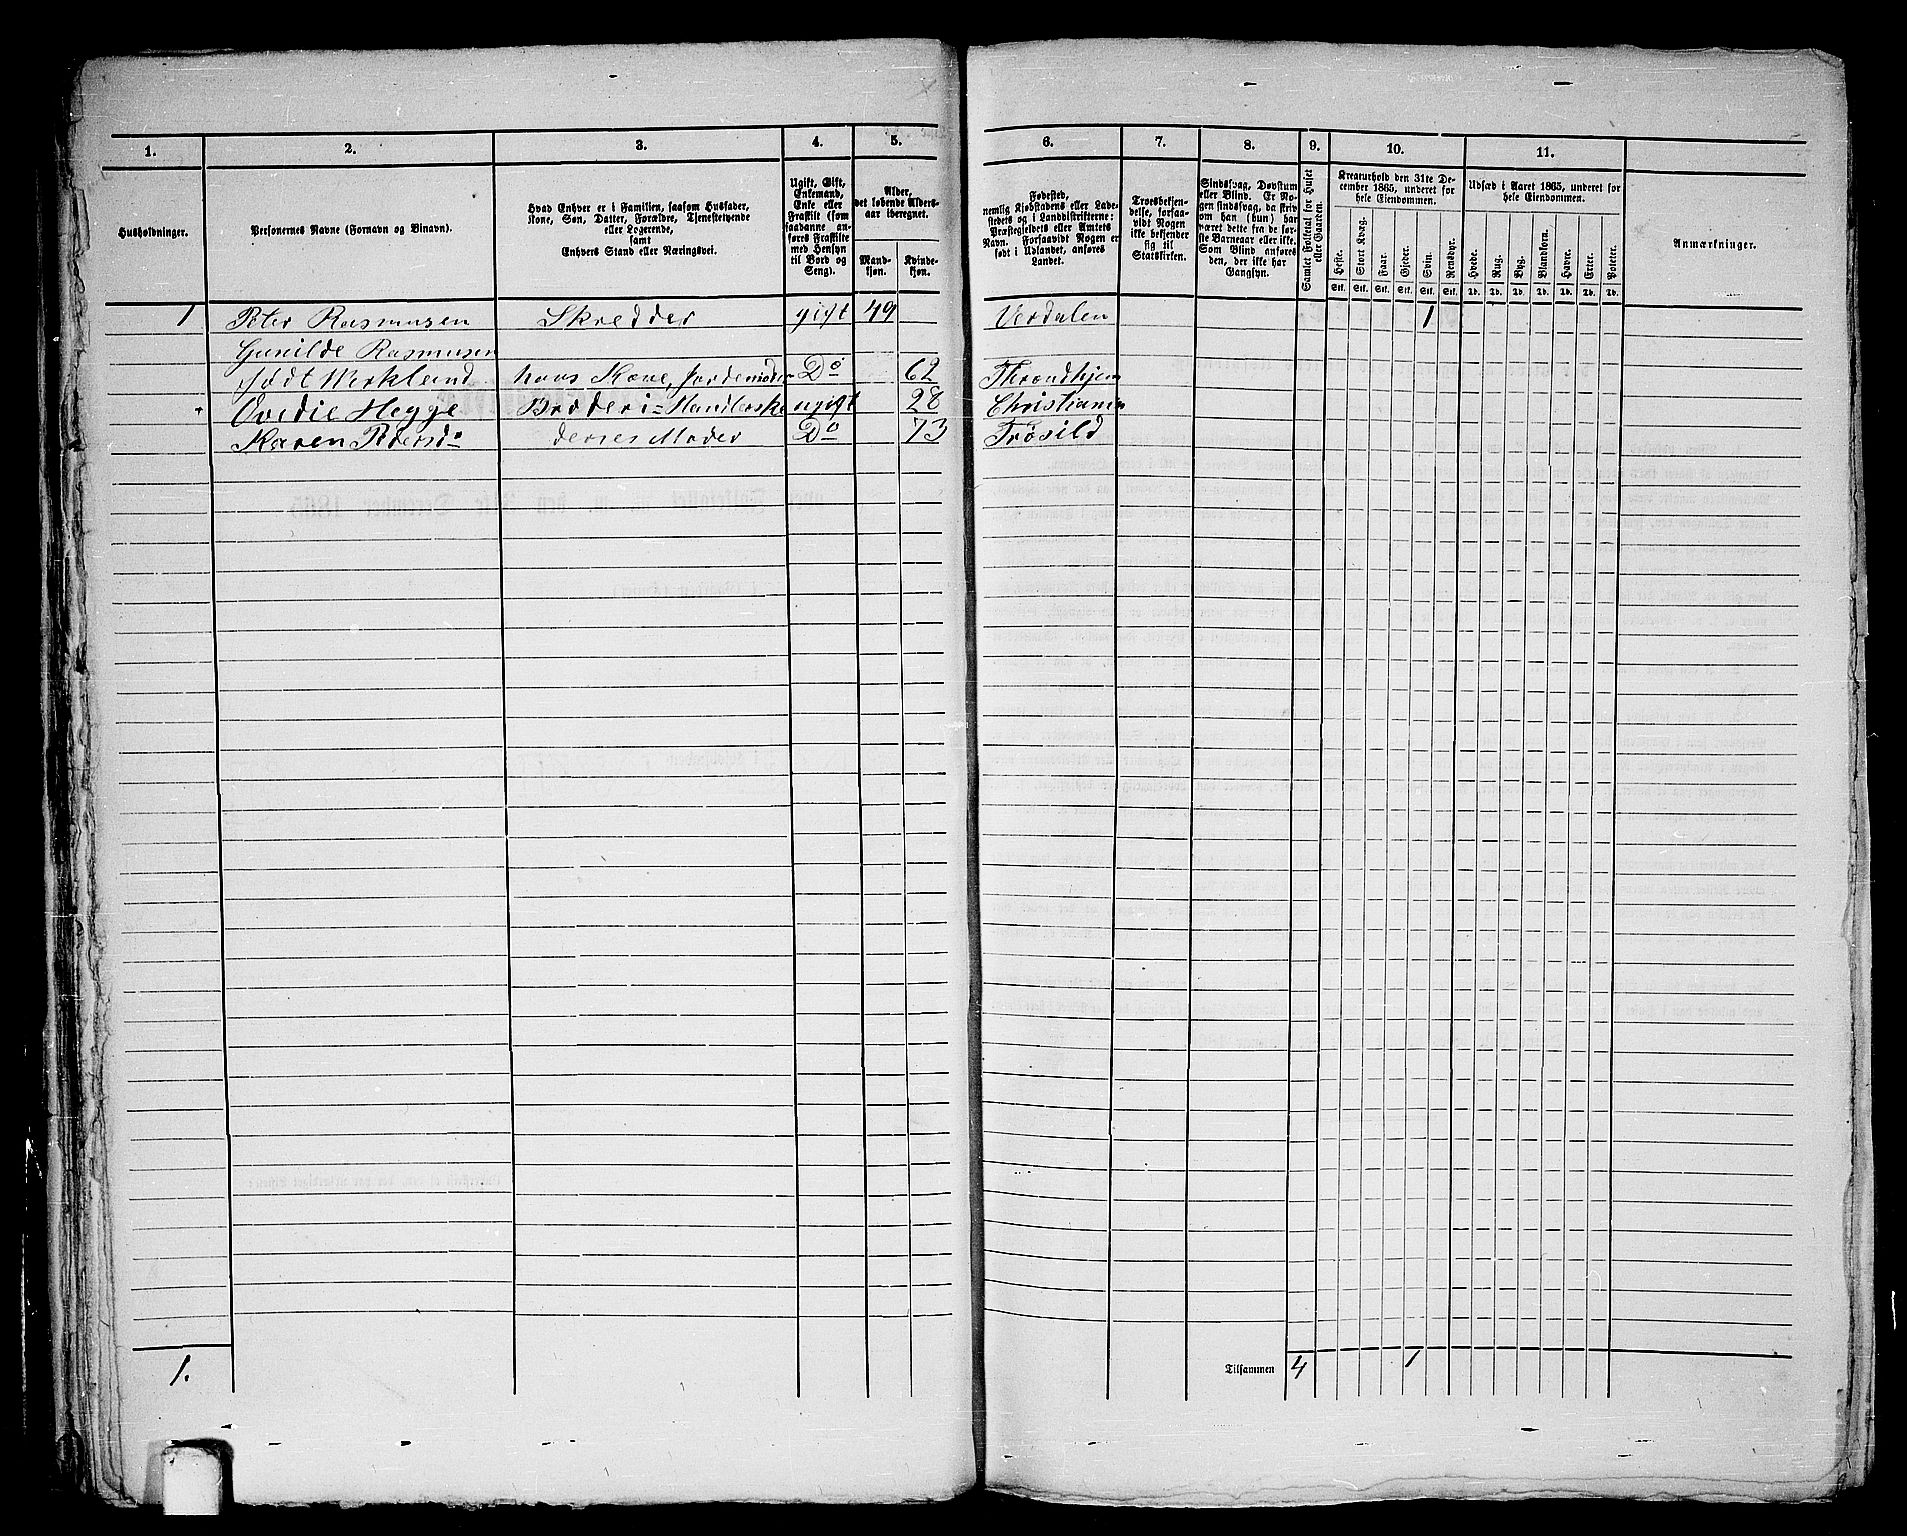 1. 2. 3. 4. 5. 6. 7. 8. 9. 10. 11.
Husholdninger.
Personernes Navne (Fornavn og Binavn).
Hvad Enhver er i Familien, saasom Husfader,
Kone, Søn, Datter, Forældre, Tjenestetyende
eller Logerende,
samt
Enhvers Stand eller Næringsvei.
Ugift, Gift,
Enkemand,
Enke eller
Fraskilt (som
saadanne an-
føres Fraskilte
med Hensyn
til Bord og
Seng).
Alder,
det løbende Alders-
aar iberegnet.
Mand-
kjøn.
Kvinde-
kjøn.
Fødested,
nemlig Kjøbstadens eller Lade-
stedets og i Landdistrikterne:
Præstegjeldets eller Amtets
Navn. Forsaavidt Nogen er
født i Udlandet, anføres
Landet.
Troesbekjen-
delse, forsaa-
vidt Nogen
ikke bekjender
sig til
Statskirken.
Sindssvag, Døvstum
eller Blind. Er No-
gen sindssvag, da skriv
om han (hun) har
været dette fra de før-
ste Barneaar eller ikke.
Som Blind anføres
den, der ikke har
Gangsyn.
Samlet Folketal for Huset
eller Gaarden.
Kreaturhold den 31te De-
cember 1865, underet for
hele Eiendommen.
Heste. Stort Kvæg. Faar. Gjeder. Svin. Rensdyr.
Stk. Stk. Stk. Stk. Stk. Stk.
Udsæd i Aaret 1865, underet for
hele Eiendommen.
Hvede. Rug. Byg. Blandkorn. Havre. Erter. Poteter.
Td. Td. Td. Td. Td. Td. Td.
Anmærkninger.
1 Peter Rasmusen Skredder gift 49 Verdalen 1
Gunilde Rasmusen
født Merkland hans Kone, Jordemoder Do 62 Throndhjem
Ovedie Hegge Broderi= Handlerske ugift 28 Christiania
Karen Pedersd= derses Moder Do 73 Trøsild
1. Tilsammen 4 1